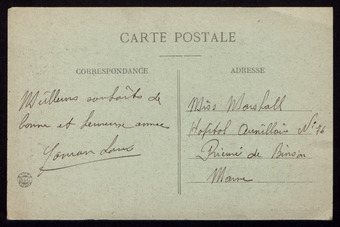 CARTE POSTALE
CORRESPONDANCE
Meilleurs souhaits de
bonne et heureuse année
ADRESSE
Miss Marshall
Hopital Auxiliaire N° 76
Prieuré de Binson
Marne